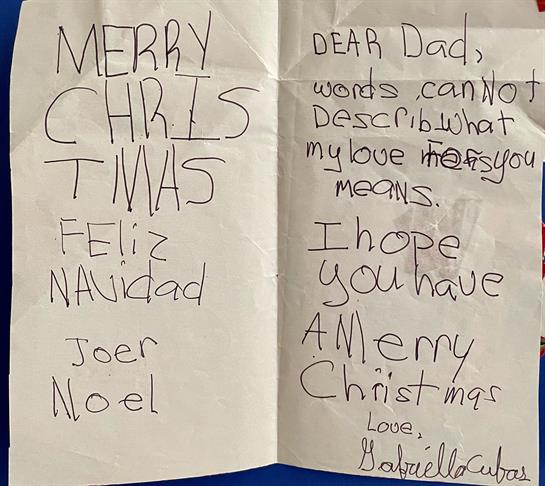 MERRY
CHRIS
TMAS
FEliz
NAVidad
Joer
Noel
DEAR Dad,
words canNot
Describ what
my love you
MEANS.
I hope
you have
A Merry
Christmas
Love,
Gabriella Cubas